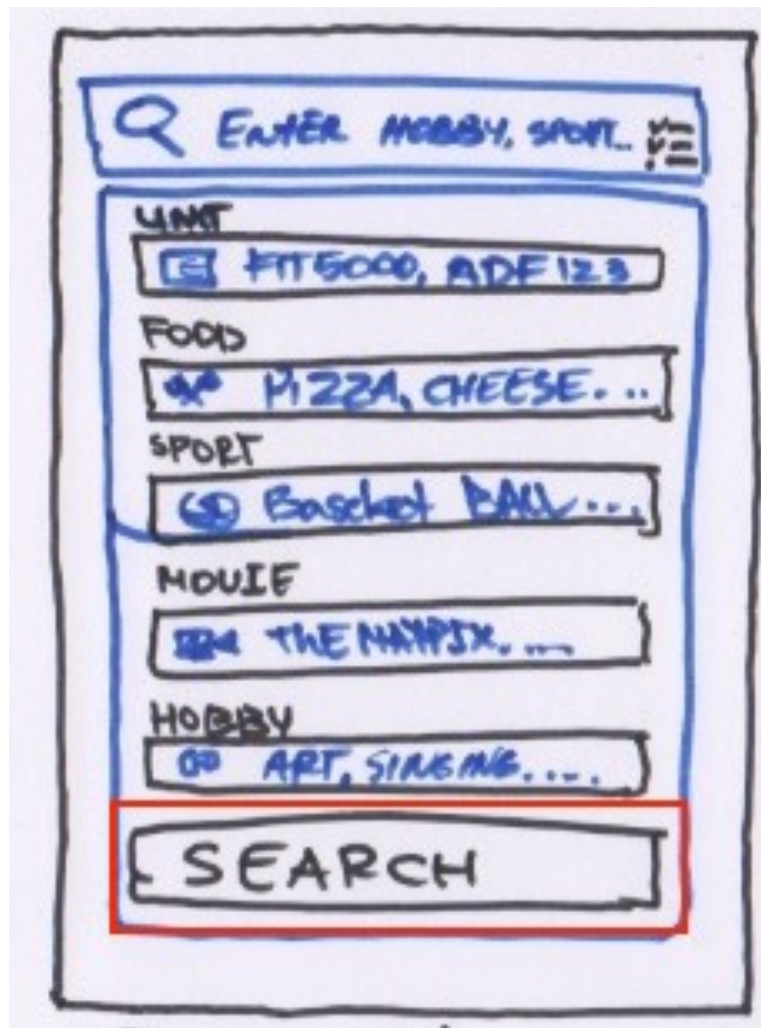 ENTER HOBBY, SPORT..
UNIT
FIT5000, ADF123
FOOD
PIZZA, CHEESE...
SPORT
Bascket BALL...
MOVIE
THE MATRIX....
HOBBY
ART, SINGING.....
SEARCH